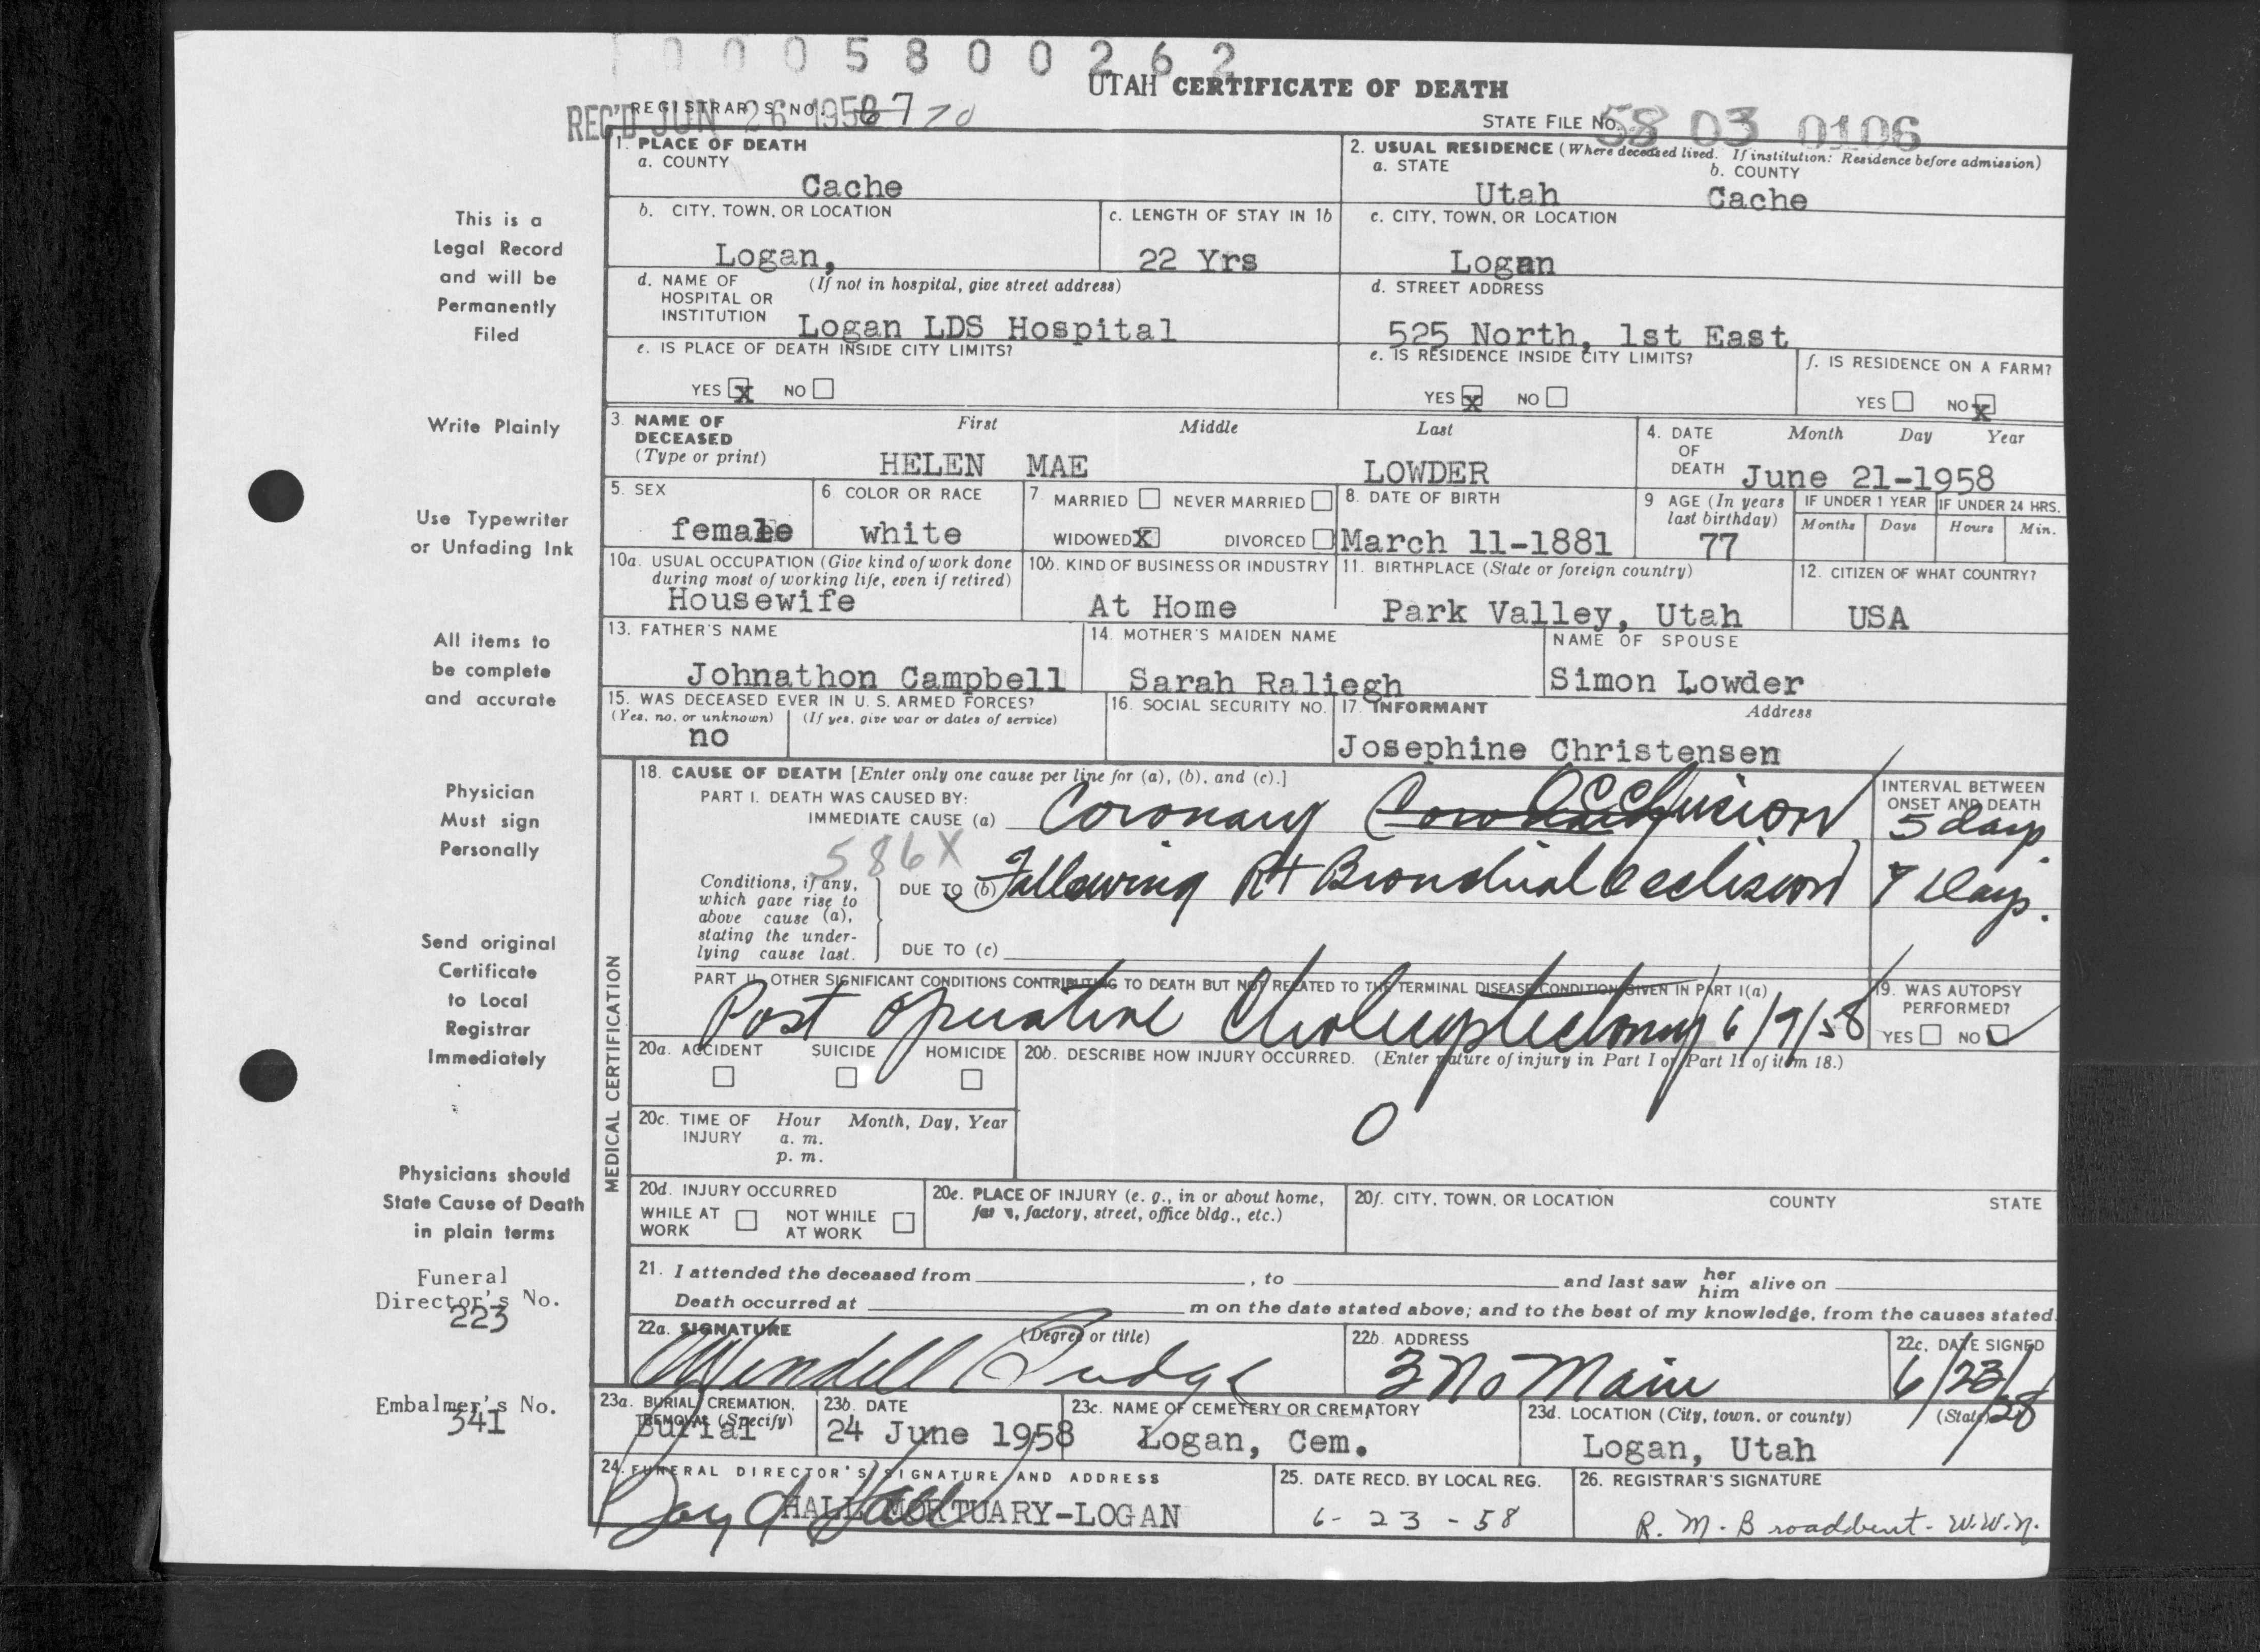 0005800262
UTAH CERTIFICATE OF DEATH
REC'D JUN 26 1958
REGISTRAR'S NO. 67 70
STATE FILE NO. 58 03 0106
1. PLACE OF DEATH
a. COUNTY
Cache
2. USUAL RESIDENCE (Where deceased lived. If institution: Residence before admission)
a. STATE
Utah
b. COUNTY
Cache
b. CITY, TOWN, OR LOCATION
Logan,
c. LENGTH OF STAY IN 1b
22 Yrs
c. CITY, TOWN, OR LOCATION
Logan
d. NAME OF HOSPITAL OR INSTITUTION
(If not in hospital, give street address)
Logan LDS Hospital
d. STREET ADDRESS
525 North, 1st East
e. IS PLACE OF DEATH INSIDE CITY LIMITS?
YES x NO
e. IS RESIDENCE INSIDE CITY LIMITS?
YES x NO
f. IS RESIDENCE ON A FARM?
YES NO x
3. NAME OF DECEASED (Type or print)
First Middle Last
HELEN MAE LOWDER
4. DATE OF DEATH
Month Day Year
June 21-1958
5. SEX
female
6. COLOR OR RACE
white
7. MARRIED NEVER MARRIED
WIDOWED X DIVORCED
8. DATE OF BIRTH
March 11-1881
9 AGE (In years last birthday)
77
IF UNDER 1 YEAR
Months Days
IF UNDER 24 HRS.
Hours Min.
10a. USUAL OCCUPATION (Give kind of work done during most of working life, even if retired)
Housewife
10b. KIND OF BUSINESS OR INDUSTRY
At Home
11. BIRTHPLACE (State or foreign country)
Park Valley, Utah
12. CITIZEN OF WHAT COUNTRY?
USA
13. FATHER'S NAME
Johnathon Campbell
14. MOTHER'S MAIDEN NAME
Sarah Raliegh
NAME OF SPOUSE
Simon Lowder
15. WAS DECEASED EVER IN U. S. ARMED FORCES?
(Yes, no, or unknown) (If yes, give war or dates of service)
no
16. SOCIAL SECURITY NO.
17. INFORMANT Address
Josephine Christensen
MEDICAL CERTIFICATION
18. CAUSE OF DEATH [Enter only one cause per line for (a), (b), and (c).]
PART I. DEATH WAS CAUSED BY:
IMMEDIATE CAUSE (a) Coronary Occlusion
INTERVAL BETWEEN ONSET AND DEATH
5 days
586X
Conditions, if any, which gave rise to above cause (a), stating the underlying cause last.
DUE TO (b) Following Rt Bronchial Occlusion
7 Days.
DUE TO (c)
PART II. OTHER SIGNIFICANT CONDITIONS CONTRIBUTING TO DEATH BUT NOT RELATED TO THE TERMINAL DISEASE CONDITION GIVEN IN PART I(a)
Post Operative Cholecystectomy 6/9/58
19. WAS AUTOPSY PERFORMED?
YES NO ✓
20a. ACCIDENT SUICIDE HOMICIDE
20b. DESCRIBE HOW INJURY OCCURRED. (Enter nature of injury in Part I or Part II of item 18.)
0
20c. TIME OF INJURY
Hour Month, Day, Year
a. m.
p. m.
20d. INJURY OCCURRED
WHILE AT WORK NOT WHILE AT WORK
20e. PLACE OF INJURY (e. g., in or about home, farm, factory, street, office bldg., etc.)
20f. CITY, TOWN, OR LOCATION COUNTY STATE
21. I attended the deceased from , to and last saw her him alive on
Death occurred at m on the date stated above; and to the best of my knowledge, from the causes stated.
22a. SIGNATURE (Degree or title)
Wendell Budge
22b. ADDRESS
3 No Main
22c. DATE SIGNED
6/23/58
23a. BURIAL, CREMATION, REMOVAL (Specify)
Burial
23b. DATE
24 June 1958
23c. NAME OF CEMETERY OR CREMATORY
Logan, Cem.
23d. LOCATION (City, town, or county) (State)
Logan, Utah
24. FUNERAL DIRECTOR'S SIGNATURE AND ADDRESS
HALL MORTUARY-LOGAN
25. DATE RECD. BY LOCAL REG.
6-23-58
26. REGISTRAR'S SIGNATURE
R. M. Broadbent - W.W.N.
This is a
Legal Record
and will be
Permanently
Filed
Write Plainly
Use Typewriter
or Unfading Ink
All items to
be complete
and accurate
Physician
Must sign
Personally
Send original
Certificate
to Local
Registrar
Immediately
Physicians should
State Cause of Death
in plain terms
Funeral
Director's No.
223
Embalmer's No.
341